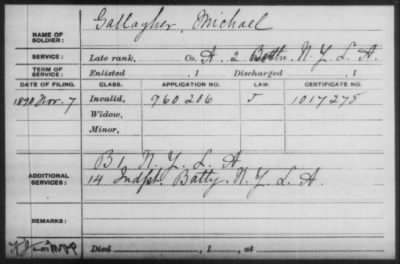 NAME OF SOLDIER: Gallagher, Michael
SERVICE: Late rank, Co. A. 2 Battn. N. Y. L. A.
TERM OF SERVICE: Enlisted , 1 Discharged , 1
DATE OF FILING. CLASS. APPLICATION NO. LAW. CERTIFICATE NO.
1890 Nov. 7 Invalid, 960 206 J 1017 275
Widow,
Minor,
ADDITIONAL SERVICES: B 1 N. Y. L. A
14 Indpt. Batty. N. Y. L. A.
REMARKS:
Died , 1 , at